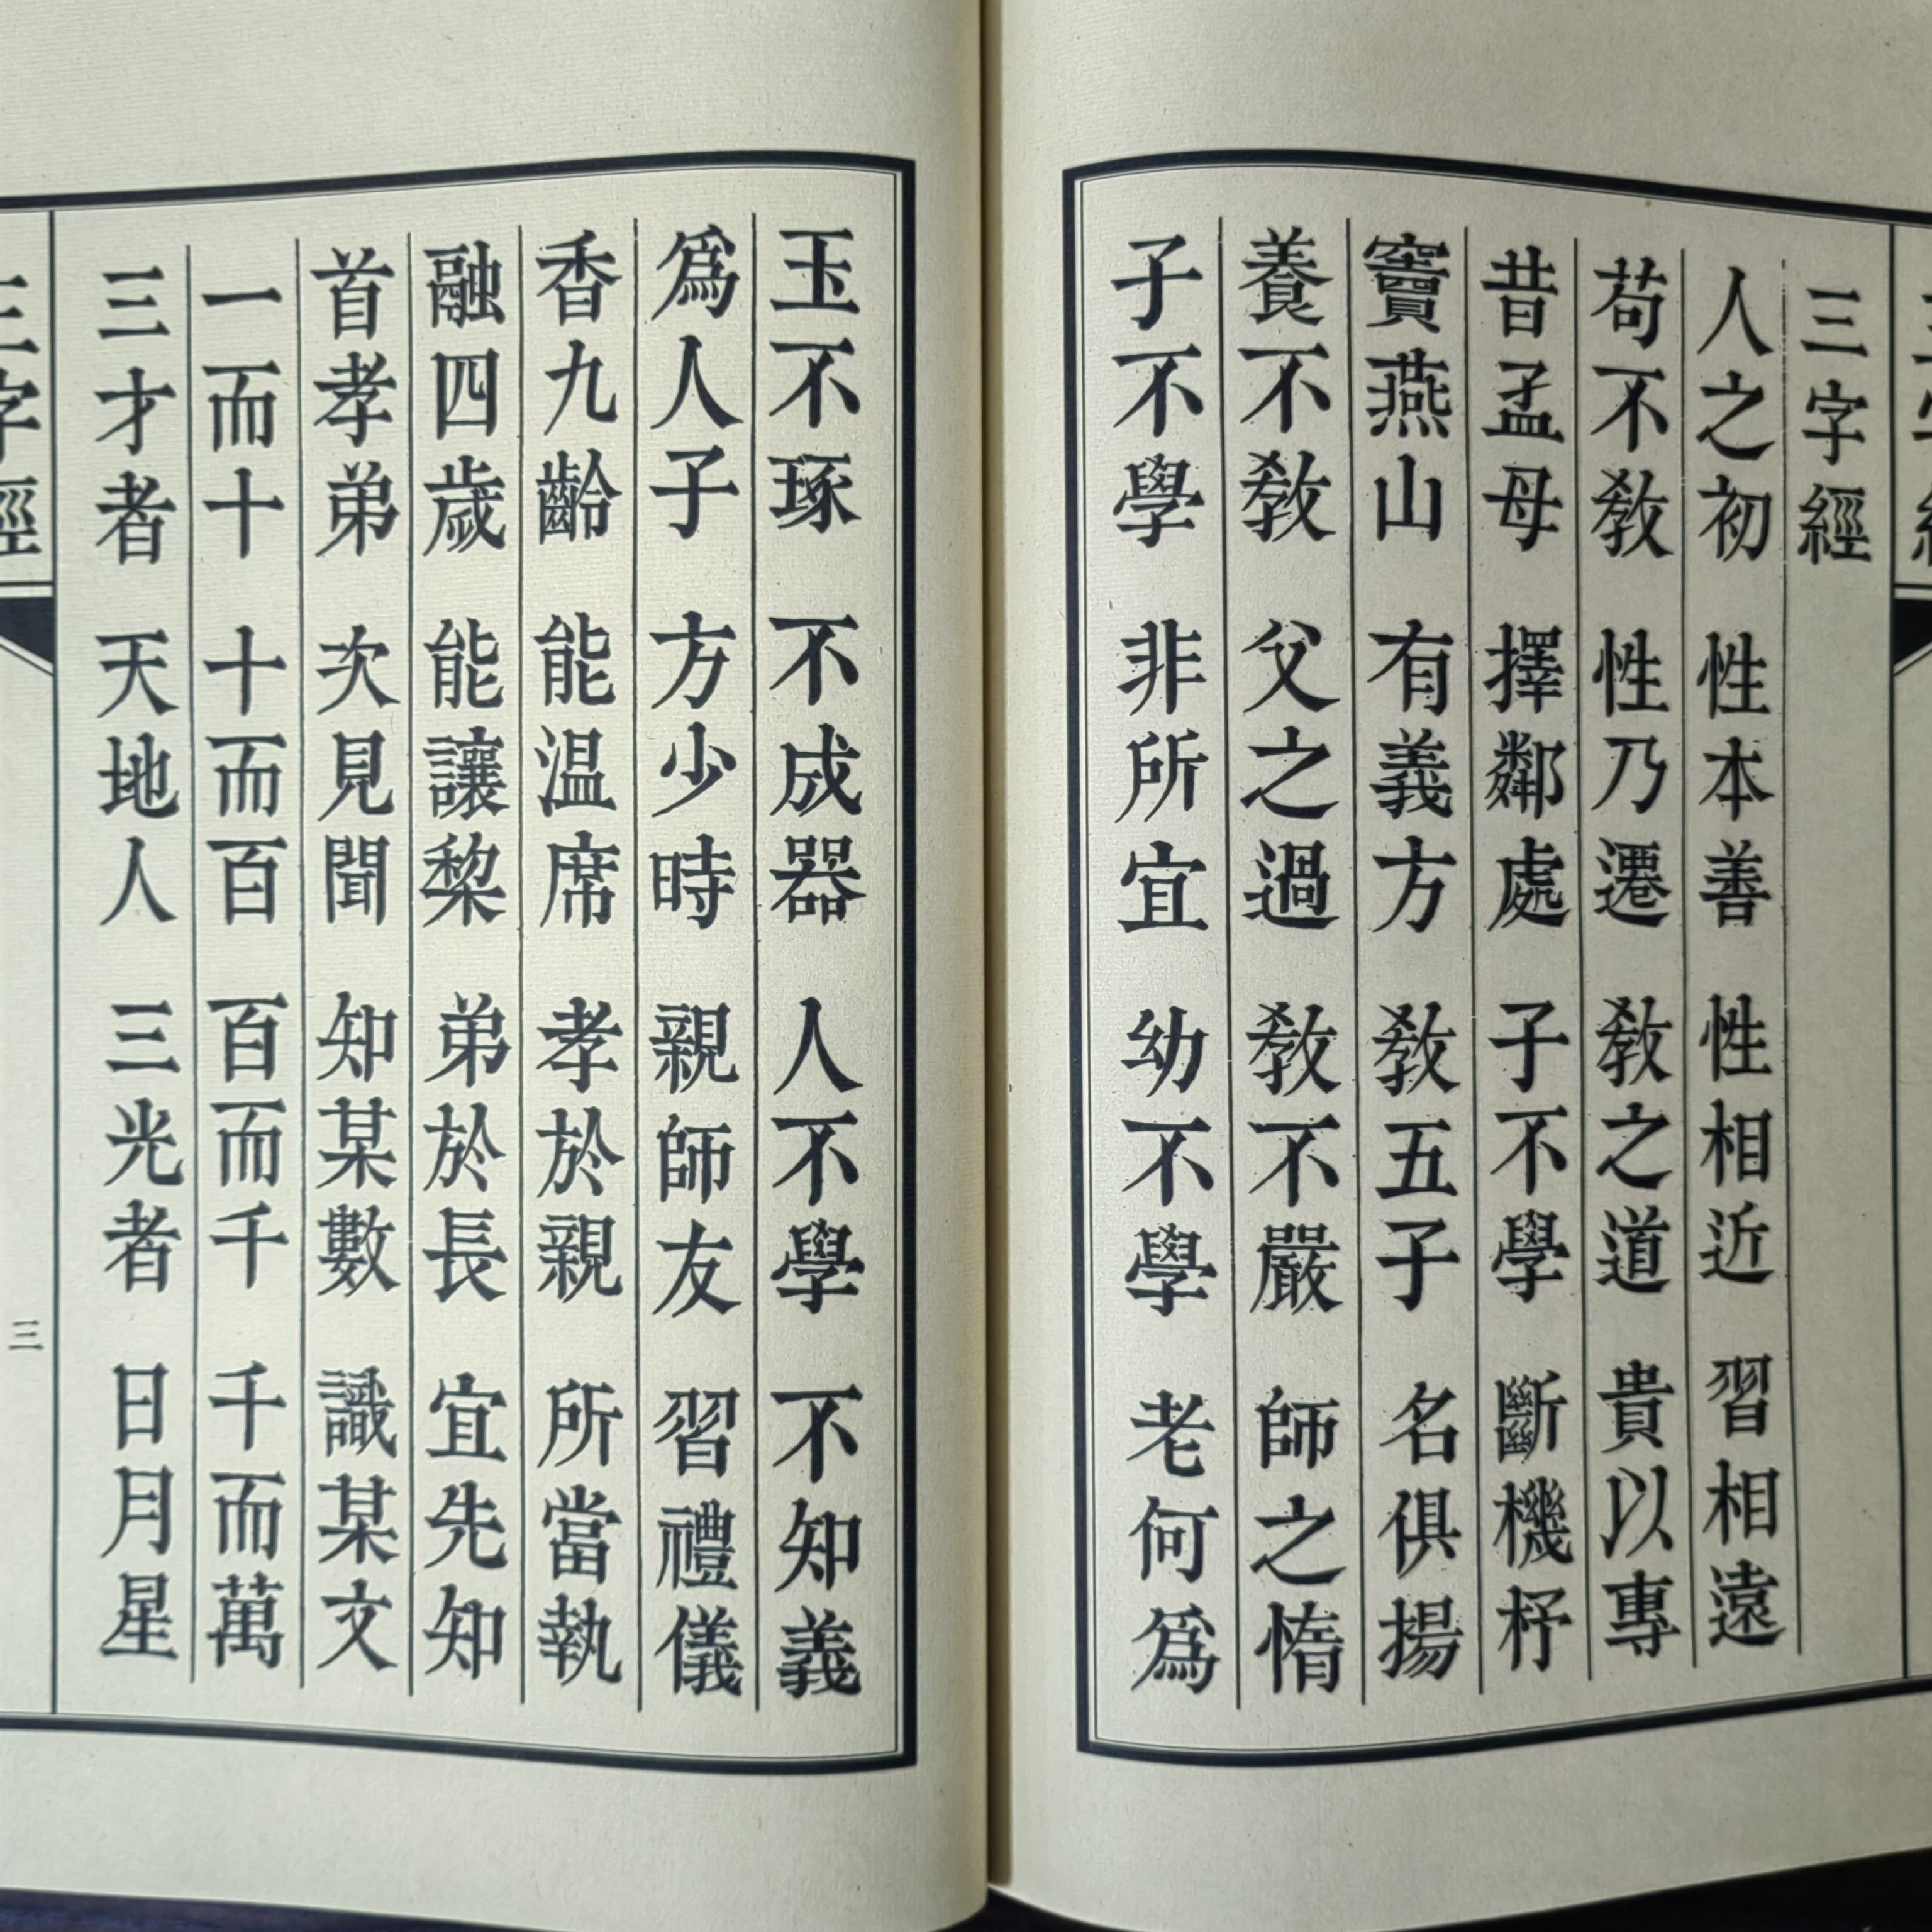 三字經
人之初 性本善 性相近 習相遠
苟不教 性乃遷 教之道 貴以專
昔孟母 擇鄰處 子不學 斷機杼
竇燕山 有義方 教五子 名俱揚
養不教 父之過 教不嚴 師之惰
子不學 非所宜 幼不學 老何爲
玉不琢 不成器 人不學 不知義
爲人子 方少時 親師友 習禮儀
香九齡 能温席 孝於親 所當執
融四歲 能讓棃 弟於長 宜先知
首孝弟 次見聞 知某數 識某文
一而十 十而百 百而千 千而萬
三才者 天地人 三光者 日月星
三字經
三